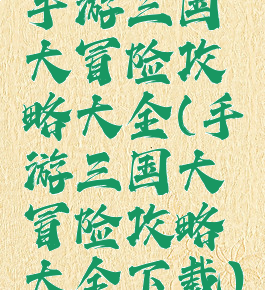 手游三国
大冒险攻
略大全(手
游三国大
冒险攻略
大全下载)